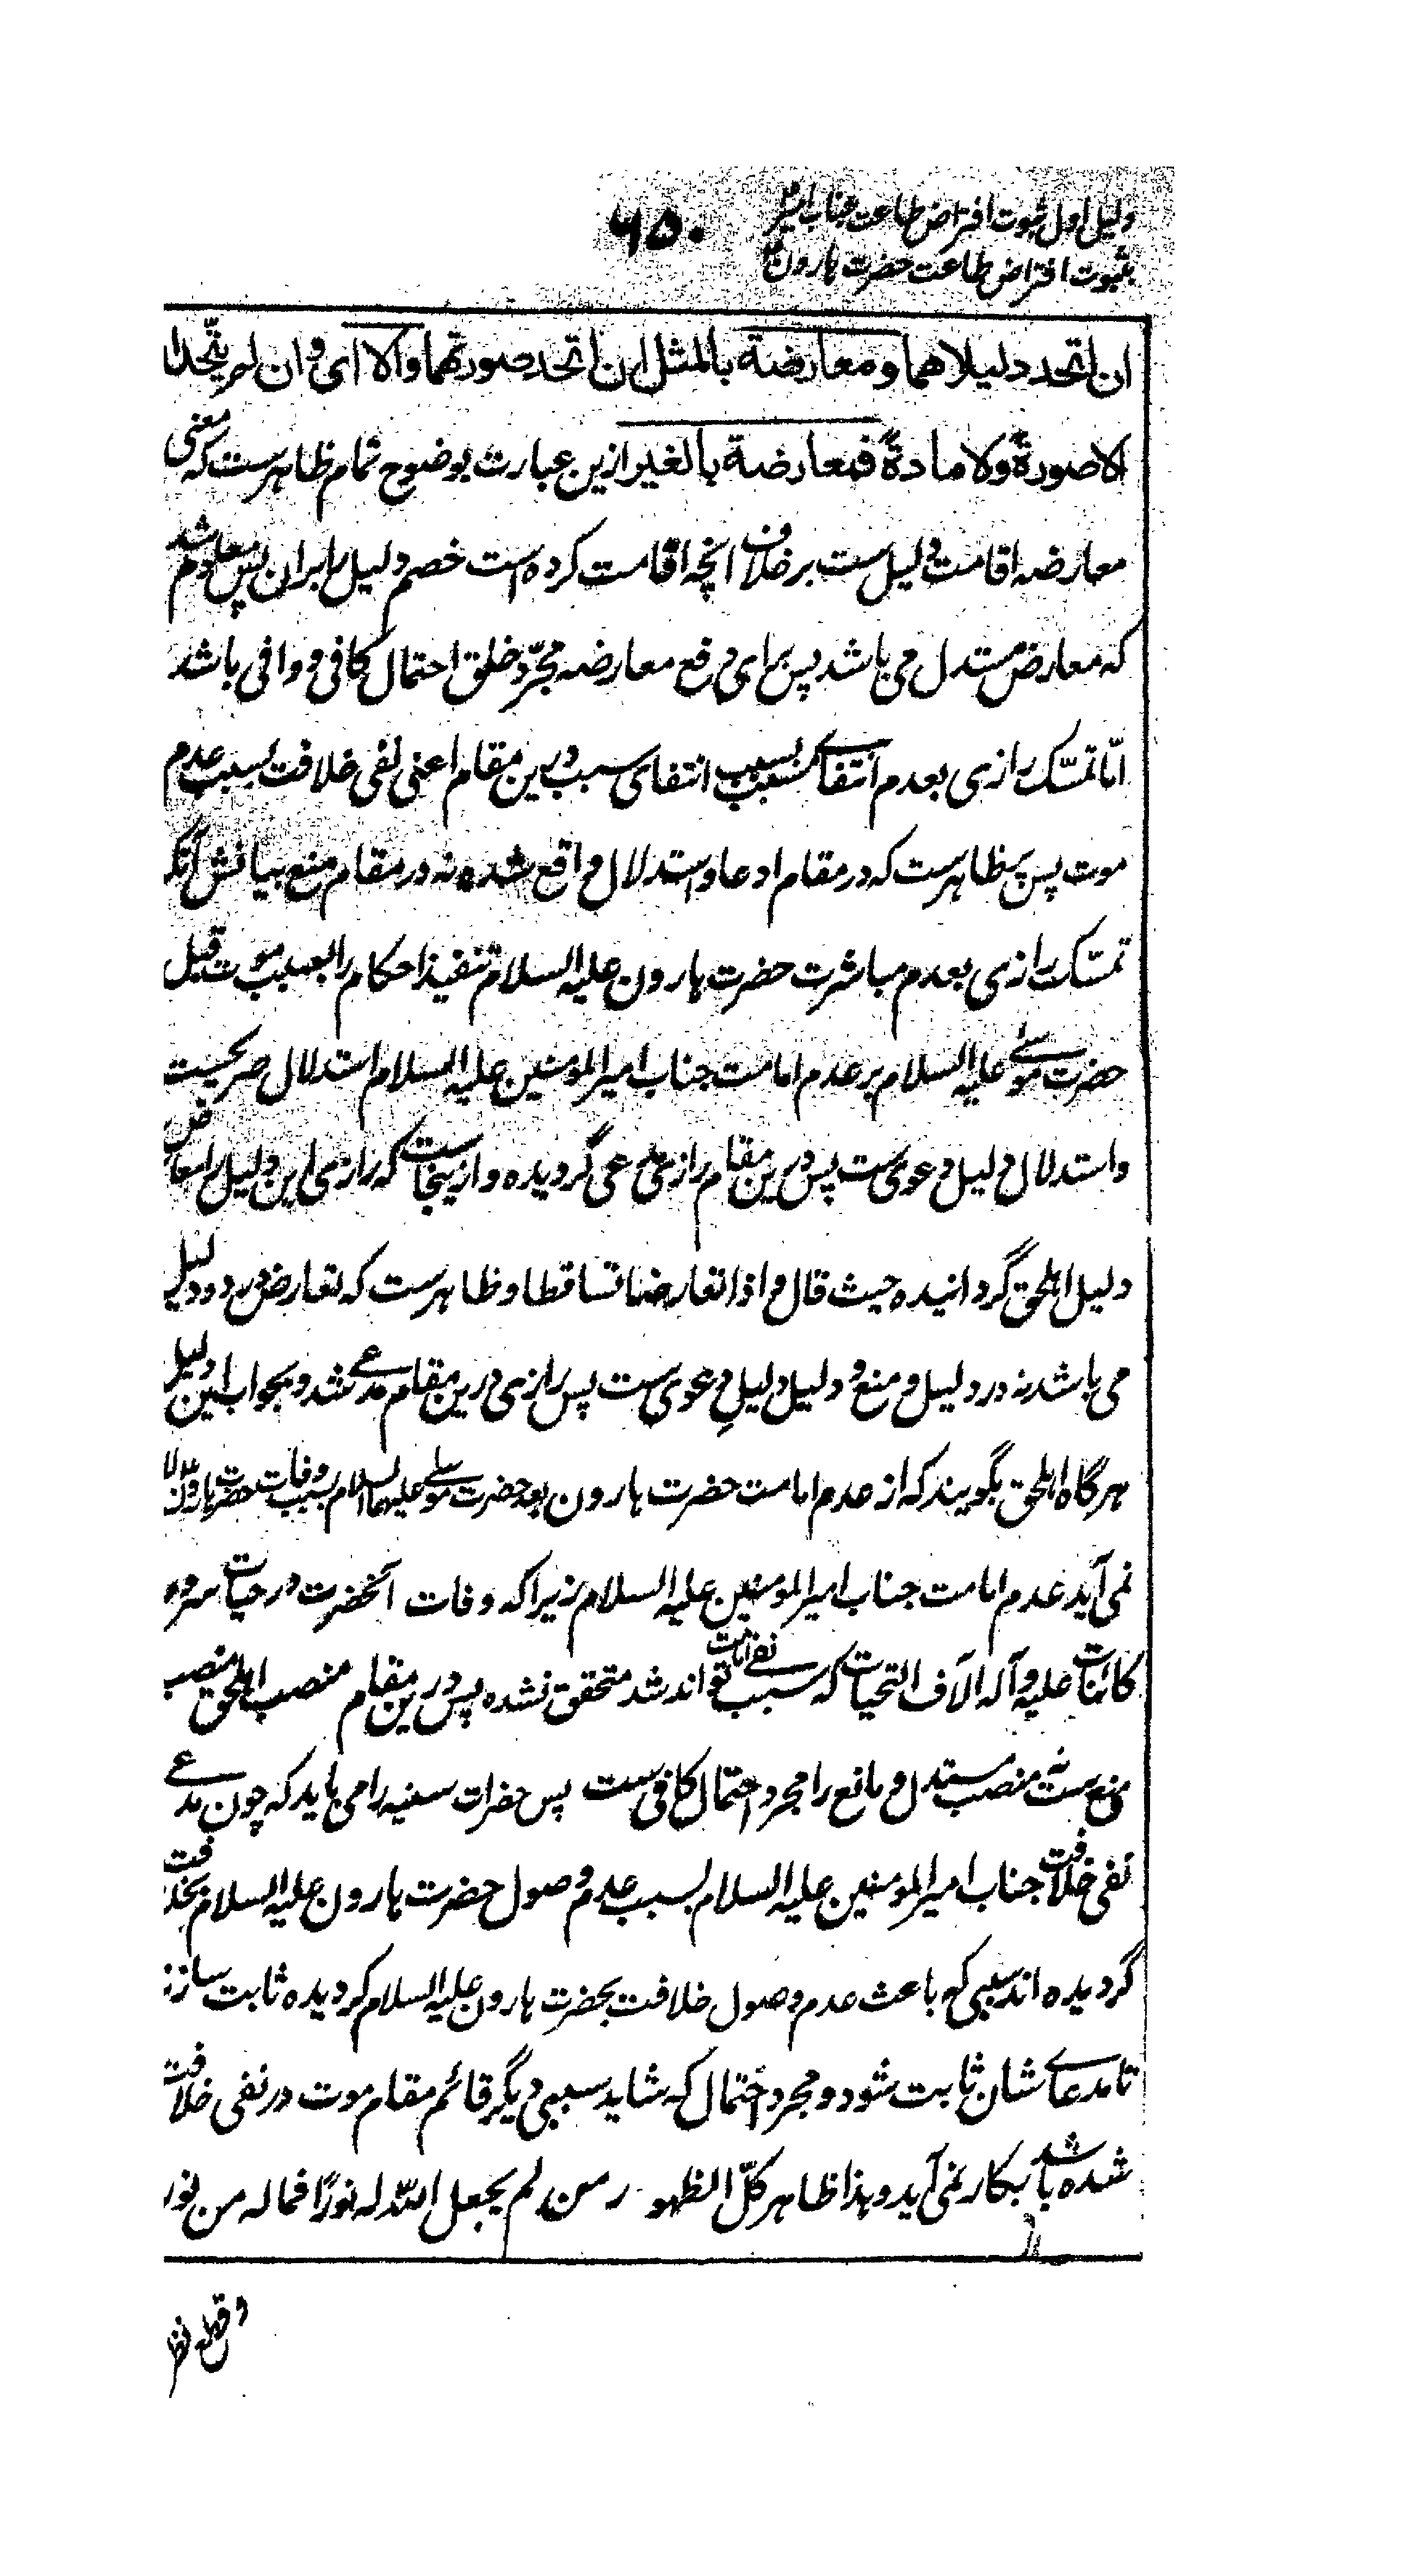 دلیل اول ثبوت افتراض طاعت جناب امیرؑ
بثبوت افتراض طاعت حضرت هارونؑ
۶۵۰
ان اتحد دلیلاهما ومعارضة بالمثل ان اتحد صورتهما والا ای وان لم یتّحدا
لا صورةً ولا مادةً فمعارضة بالغیر ازین عبارت بوضوح تمام ظاهرست که معنی
معارضه اقامت دلیل ست بر خلاف انچه اقامت کرده است خصم دلیل را بران پس معلوم شد
که معارض مستدل می باشد پس برای دفع معارضه مجرّد خلق احتمال کافی و وافی باشد
امّا تمسّک رازی بعدم انتفای مسبب بسبب انتفای سبب درین مقام اعنی نفی خلافت بسبب عدم
موت پس پر ظاهرست که در مقام ادعا و استدلال واقع شده نه در مقام منع بیانش آنکه
تمسّک رازی بعدم مباشرت حضرت هارون علیه السلام تنفیذ احکام را بسبب موت قبل
حضرت موسے علیه السلام بر عدم امامت جناب امیر المؤمنین علیه السلام استدلال صریحست
و استدلال دلیل دعوی ست پس درین مقام رازی مدعی گردیده و ازینجاست که رازی این دلیل را معارض
دلیل اهل حق گردانیده حیث قال و اذا تعارضا تساقطا و ظاهرست که تعارض در دو دلیل
می باشد نه در دلیل و منع و دلیل دلیلِ دعوی ست پس رازی درین مقام مدعے شد و بجواب این دلیل
هرگاه اهل حق بگویند که از عدم امامت حضرت هارون بعد حضرت موسے علیهما السلام بسبب وفات حضرت هارونؑ لازم
نمی آید عدم امامت جناب امیر المومنین علیه السلام زیرا که وفات آنحضرت در حیات سرور
کائنات علیه وآله الآف التحیات که سبب نفے امامت تواند شد متحقق نشده پس درین مقام منصب اهل حق منصب
منع ست نه منصب مستدل و مانع را مجرد احتمال کافی ست پس حضرات سنیه را می باید که چون مدعے
نفی خلافت جناب امیر المؤمنین علیه السلام بسبب عدم وصول حضرت هارون علیه السلام بخلافت
گردیده اند سببی که باعث عدم وصول خلافت بحضرت هارون علیه السلام گردیده ثابت سازند
تا مدعاے شان ثابت شود و مجرد احتمال که شاید سببی دیگر قائم مقام موت در نفی خلافت
شده باشد بکار نمی آید و هذا ظاهر کلّ الظهور من لم یجعل اللّه له نورًا فما له من نور
وقطع نظر